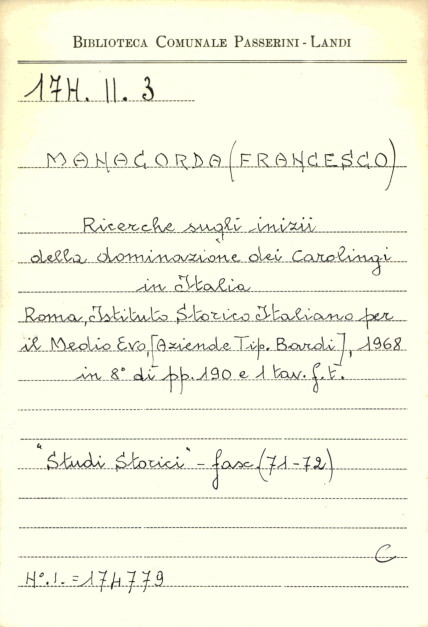 BIBLIOTECA COMUNALE PASSERINI-LANDI
17H. II. 3
MANACORDA (FRANCESCO)
Ricerche sugli inizii
della dominazione dei Carolingi
in Italia
Roma, Istituto Storico Italiano per
il Medio Evo, [Aziende Tip. Bardi], 1968
in 8° di pp. 190 e 1 tav. f. t.
"Studi Storici" - fasc. (71-72)
C
N°. I. = 174779